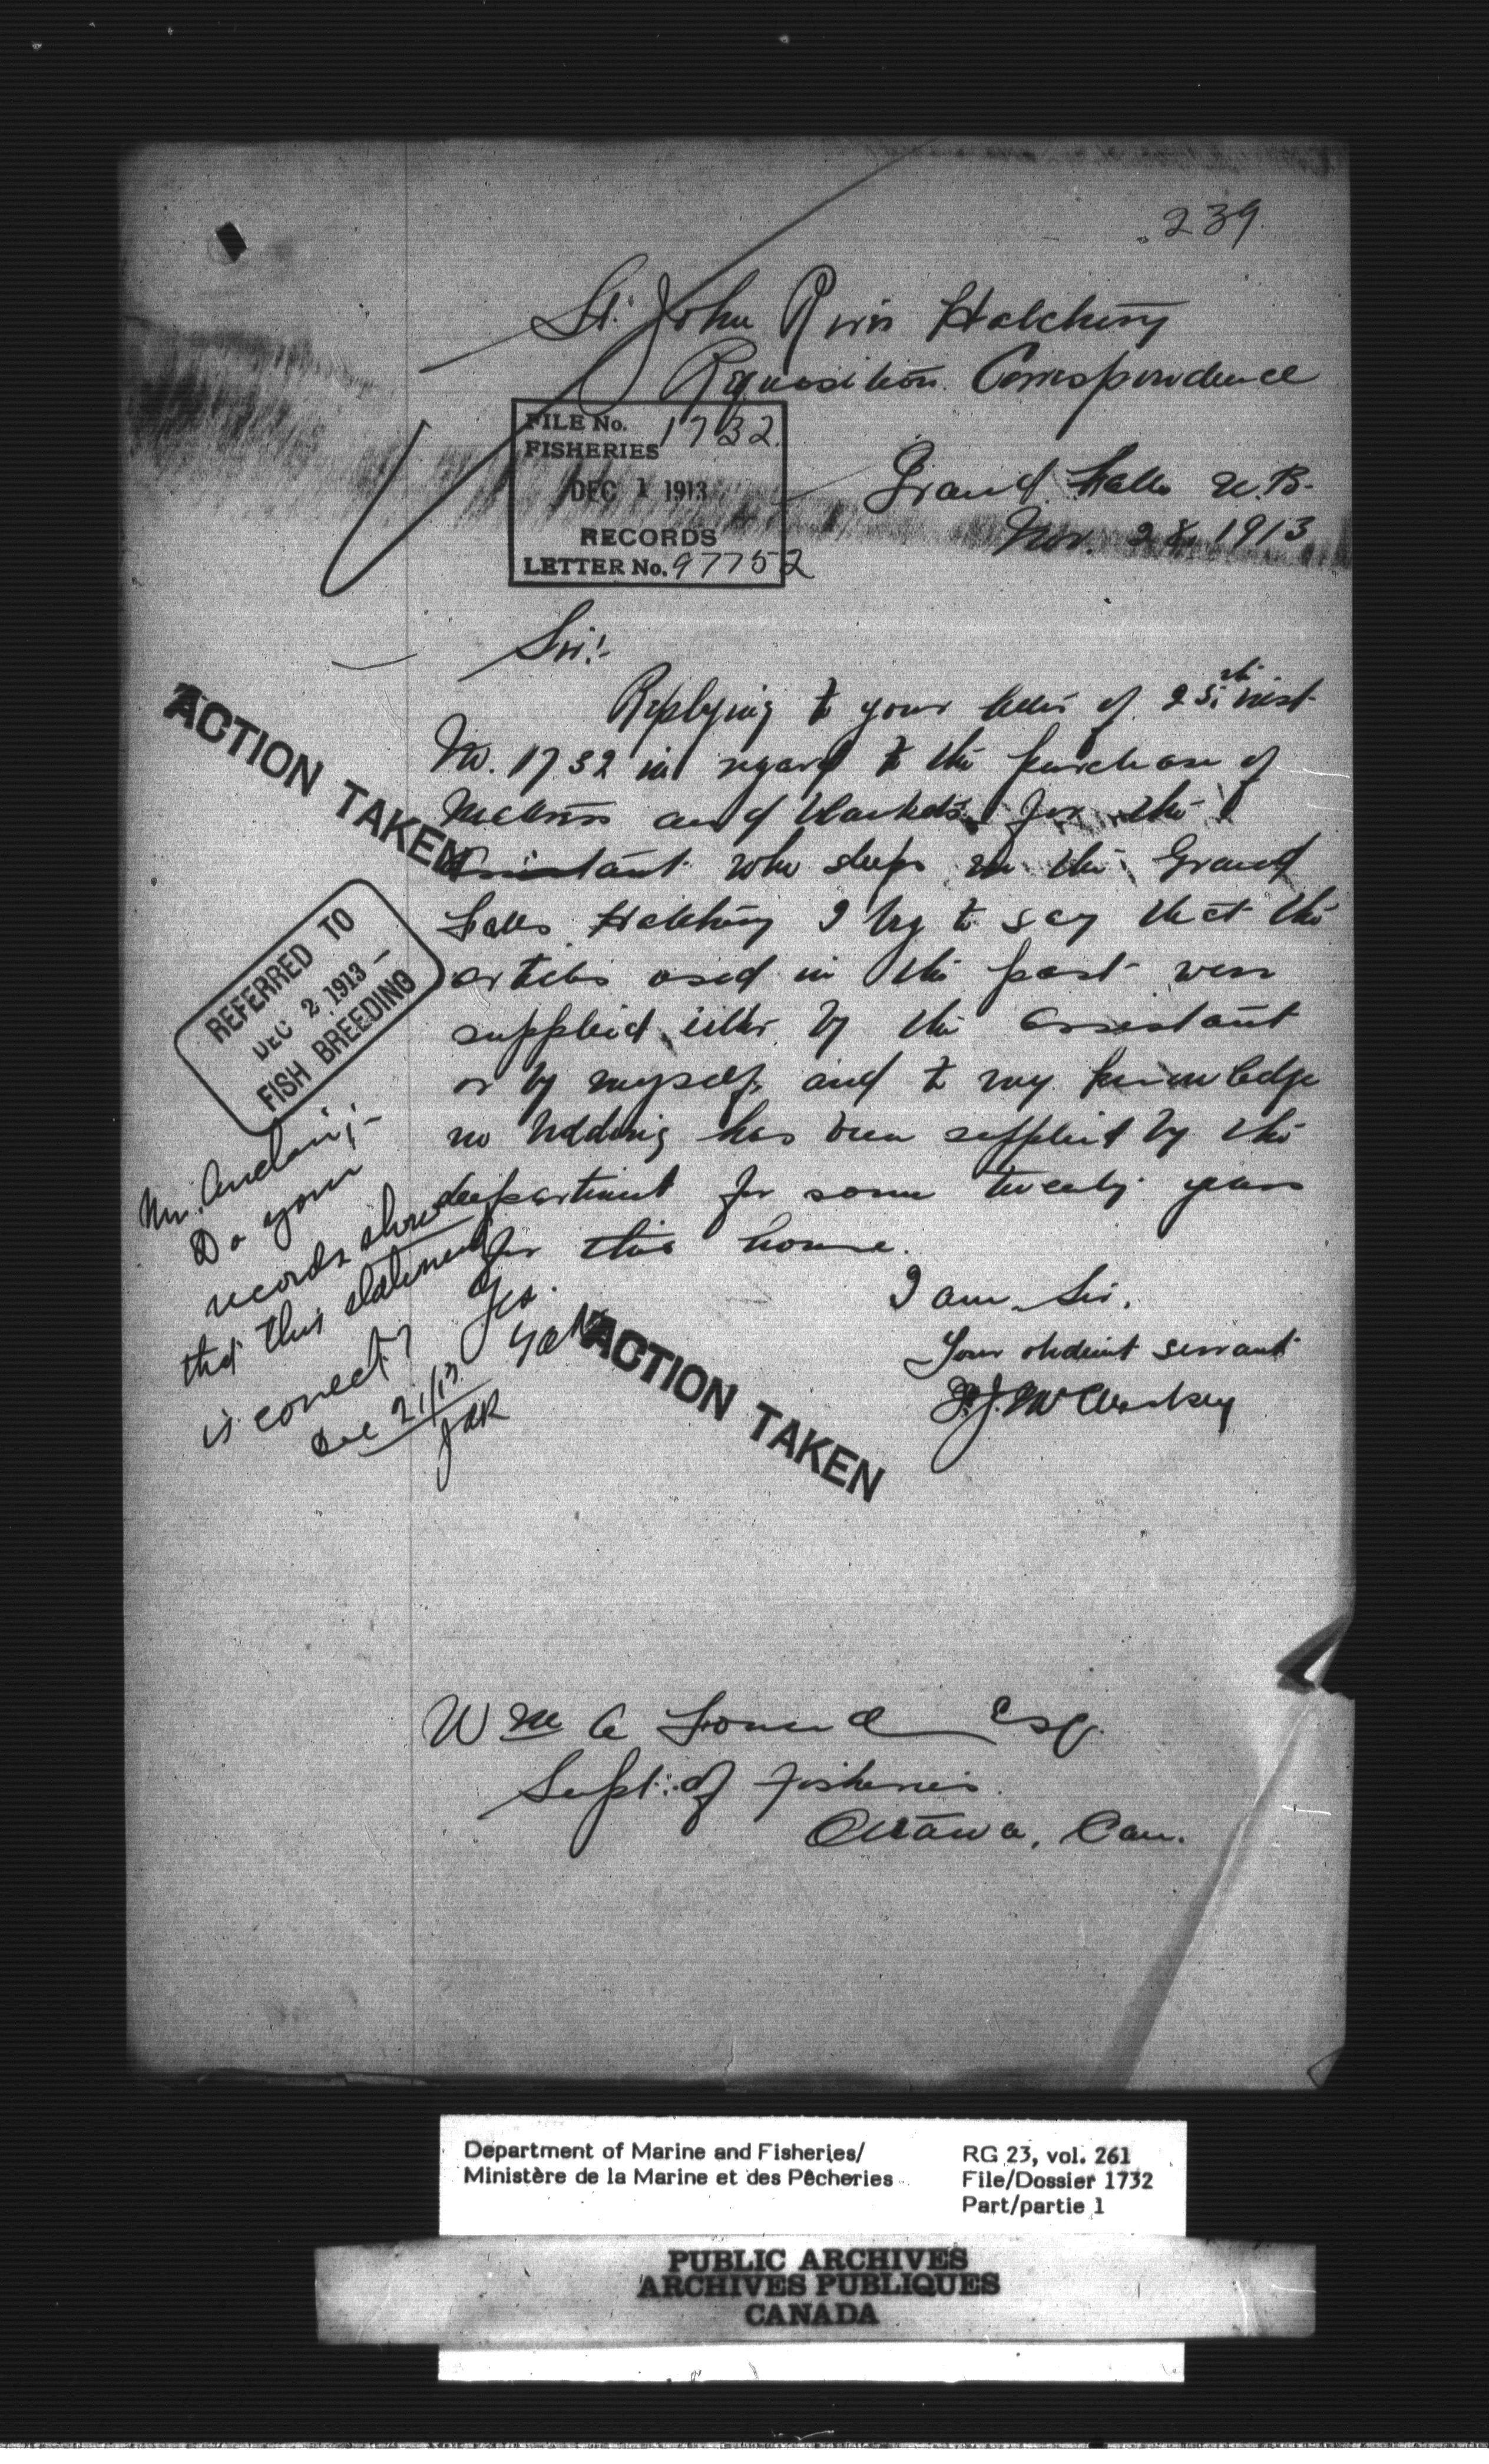 239.
St. John River Hatchery
Requisition Correspondence
FILE No. 1732.
FISHERIES
DEC 1 1913
RECORDS
LETTER No. 97752
Grand Falls N.B.
Nov. 28, 1913
Sir:-
Replying to your letter of 25th inst.
No. 1732 in regard to the purchase of
mattress and blankets for the
assistant who sleeps in the Grand
Falls Hatchery I beg to say that the
articles used in the past were
supplied either by the assistant
or by myself, and to my knowledge
no bedding has been supplied by the
department for some twenty years
for this house.
I am, Sir,
Your obedient servant
McCluskey
ACTION TAKEN
REFERRED TO
DEC 2 1913
FISH BREEDING
Mr.
Do your
records show
that this statement
is correct?
Dec 21/13
JAR
Yes.
ACTION TAKEN
Wm A Found Esq.
Supt. of Fisheries.
Ottawa, Can.
Department of Marine and Fisheries/
Ministère de la Marine et des Pêcheries
RG 23, vol. 261
File/Dossier 1732
Part/partie 1
PUBLIC ARCHIVES
ARCHIVES PUBLIQUES
CANADA